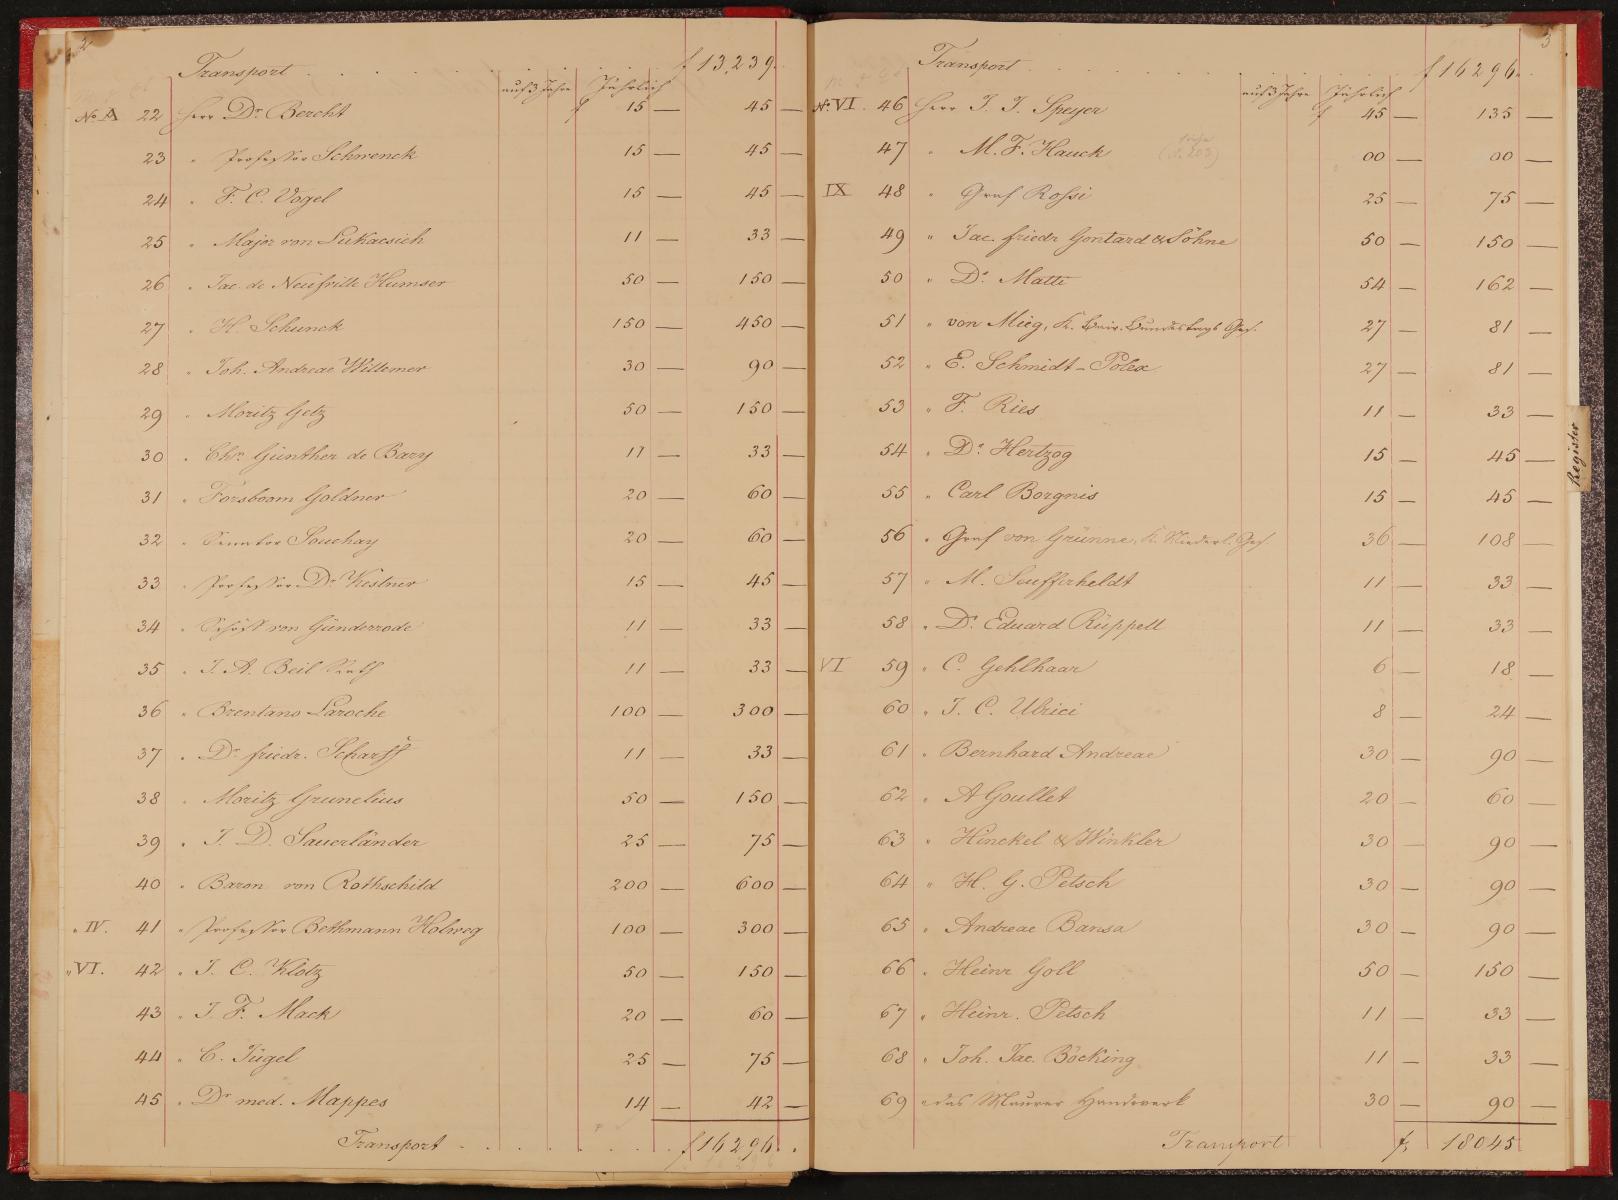 2
Transport . . . . . . . . . f 13,239.
auf 3 Jahre Jährlich
No. A 22 Herr Dr. Bercht f 15 — 45 —
23 " Professor Schwenck 15 — 45 —
24 " F. C. Vogel 15 — 45 —
25 " Major von Lukacsich 11 — 33 —
26 " Jac. de Neufville Humser 50 — 150 —
27 " H. Schunck 150 — 450 —
28 " Joh. Andreae Willemer 30 — 90 —
29 " Moritz Getz 50 — 150 —
30 " Chr. Günther de Bary 11 — 33 —
31 " Forsboom Goldner 20 — 60 —
32 " Senator Souchay 20 — 60 —
33 " Professor Dr. Kestner 15 — 45 —
34 " Schöff von Günderrode 11 — 33 —
35 " J. A. Beil Rath 11 — 33 —
36 " Brentano Laroche 100 — 300 —
37 " Dr. friedr. Scharff 11 — 33 —
38 " Moritz Grunelius 50 — 150 —
39 " J. D. Sauerländer 25 — 75 —
40 " Baron von Rothschild 200 — 600 —
" IV. 41 " Professor Bethmann Holweg 100 — 300 —
" VI. 42 " J. C. Klotz 50 — 150 —
43 " J. F. Mack 20 — 60 —
44 " C. Jügel 25 — 75 —
45 " Dr. med. Mappes 14 — 42 —
Transport . . . . . . . f 16296. .
3
Transport . . . . . . . . . f 16296. .
auf 3 Jahre Jährlich
No. VI. 46 Herr J. J. Speyer f 45 — 135 —
47 " M. F. Hauck (siehe No. 203) 00 — 00 —
IX 48 " Graf Rossi 25 — 75 —
49 " Jac. friedr Gontard & Söhne 50 — 150 —
50 " Dr. Matti 54 — 162 —
51 " von Mieg, K. Bair. Bundestags Ges. 27 — 81 —
52 " E. Schmidt-Polex 27 — 81 —
53 " F. Ries 11 — 33 —
54 " Dr. Hertzog 15 — 45 —
55 " Carl Borgnis 15 — 45 —
56 " Graf von Grünne, K. Niederl. Ges. 36 — 108 —
57 " M. Seufferheldt 11 — 33 —
58 " Dr. Eduard Rüppell 11 — 33 —
VI 59 " C. Gehlhaar 6 — 18 —
60 " J. C. Ulrici 8 — 24 —
61 " Bernhard Andreae 30 — 90 —
62 " A Goullet 20 — 60 —
63 " Hinckel & Winkler 30 — 90 —
64 " H. G. Petsch 30 — 90 —
65 " Andreae Bansa 30 — 90 —
66 " Heinr Goll 50 — 150 —
67 " Heinr. Petsch 11 — 33 —
68 " Joh. Jac. Böcking 11 — 33 —
69 " das Maurer Handwerk 30 — 90 —
Transport f. 18045
Register